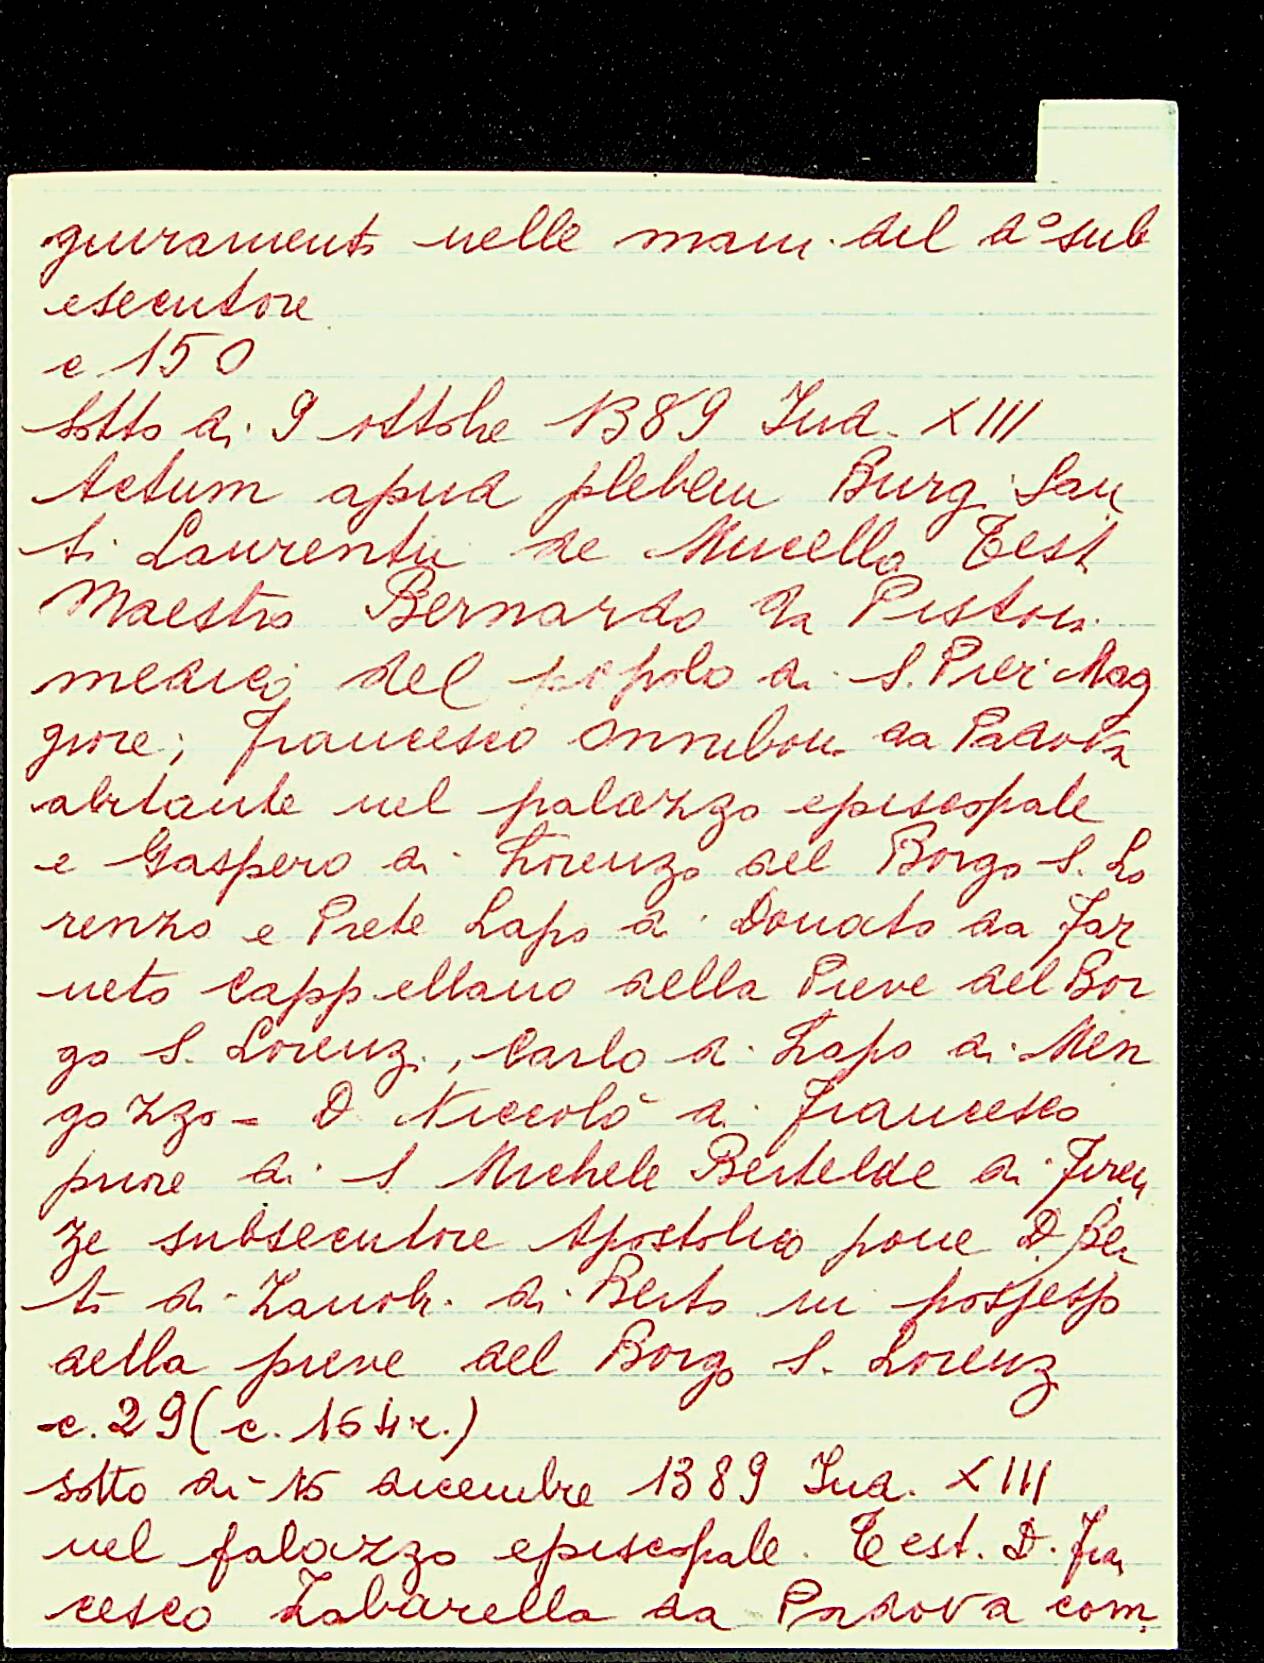 giuramento nelle mani del d° sub
esecutore
c. 150
sotto di 9 ottobre 1389 Ind. XIII
Actum apud plebem Burgi San
ti Laurentii de Mucello Test
Maestro Bernardo da Pistoia
medico del popolo di S. Pier Mag
giore; Francesco Onniboni da Padova
abitante nel palazzo episcopale
e Gaspero di Lorenzo del Borgo S. Lo
renzo e Prete Lapo di Donato da Far
neto Cappellano della Pieve del Bor
go S. Lorenzo, Carlo di Lapo di Men
gozzo - D Niccolò di Francesco
priore di S Michele Bertelde di Firen
ze subsecutore Apostolico pone D. Ber
to di Zanobi di Berto in possesso
della pieve del Borgo S. Lorenzo
c. 29 (c. 164 r.)
sotto di 16 dicembre 1389 Ind. XIII
nel palazzo episcopale. Test. D. Fran
cesco Zabarella da Padova com